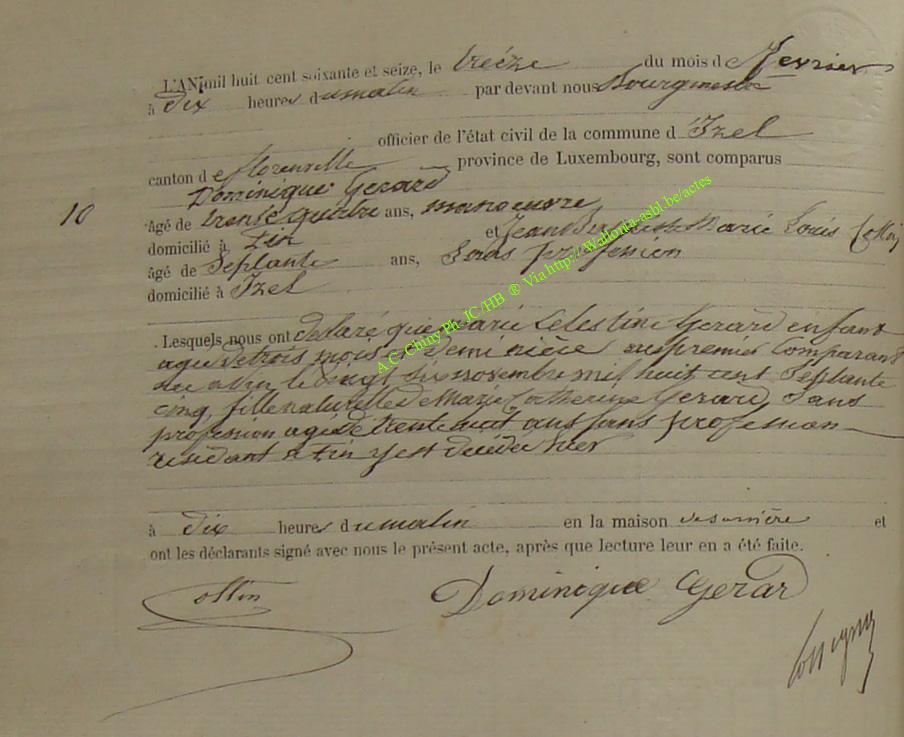 L'AN mil huit cent soixante et seize, le treize du mois de fevrier
à Dix heures du matin par devant nous Bourgmestre
officier de l'état civil de la commune d'Izel
canton de florenville province de Luxembourg, sont comparus
Dominique Gerard
10
âgé de trente quatre ans, manoeuvre
domicilié à et Jean Marie Louis Collin
âgé de Septante ans, Sans profession
domicilié à Izel
Lesquels nous ont déclaré que Marie Celestine Gerard enfant
agée de trois mois & demi nièce au premier Comparant
née le vingt six novembre mil huit cent Septante
cinq, fille naturelle de Marie Catherine Gerard, Sans
profession agée de trente huit ans sans profession
résidant à y est décédée hier
à dix heures du matin en la maison de sa mère et
ont les déclarants signé avec nous le présent acte, après que lecture leur en a été faite.
Collin Dominique Gerard
A.C. Chiny Ph. JC/HB ® Via http://Wallonia-asbl.be/actes